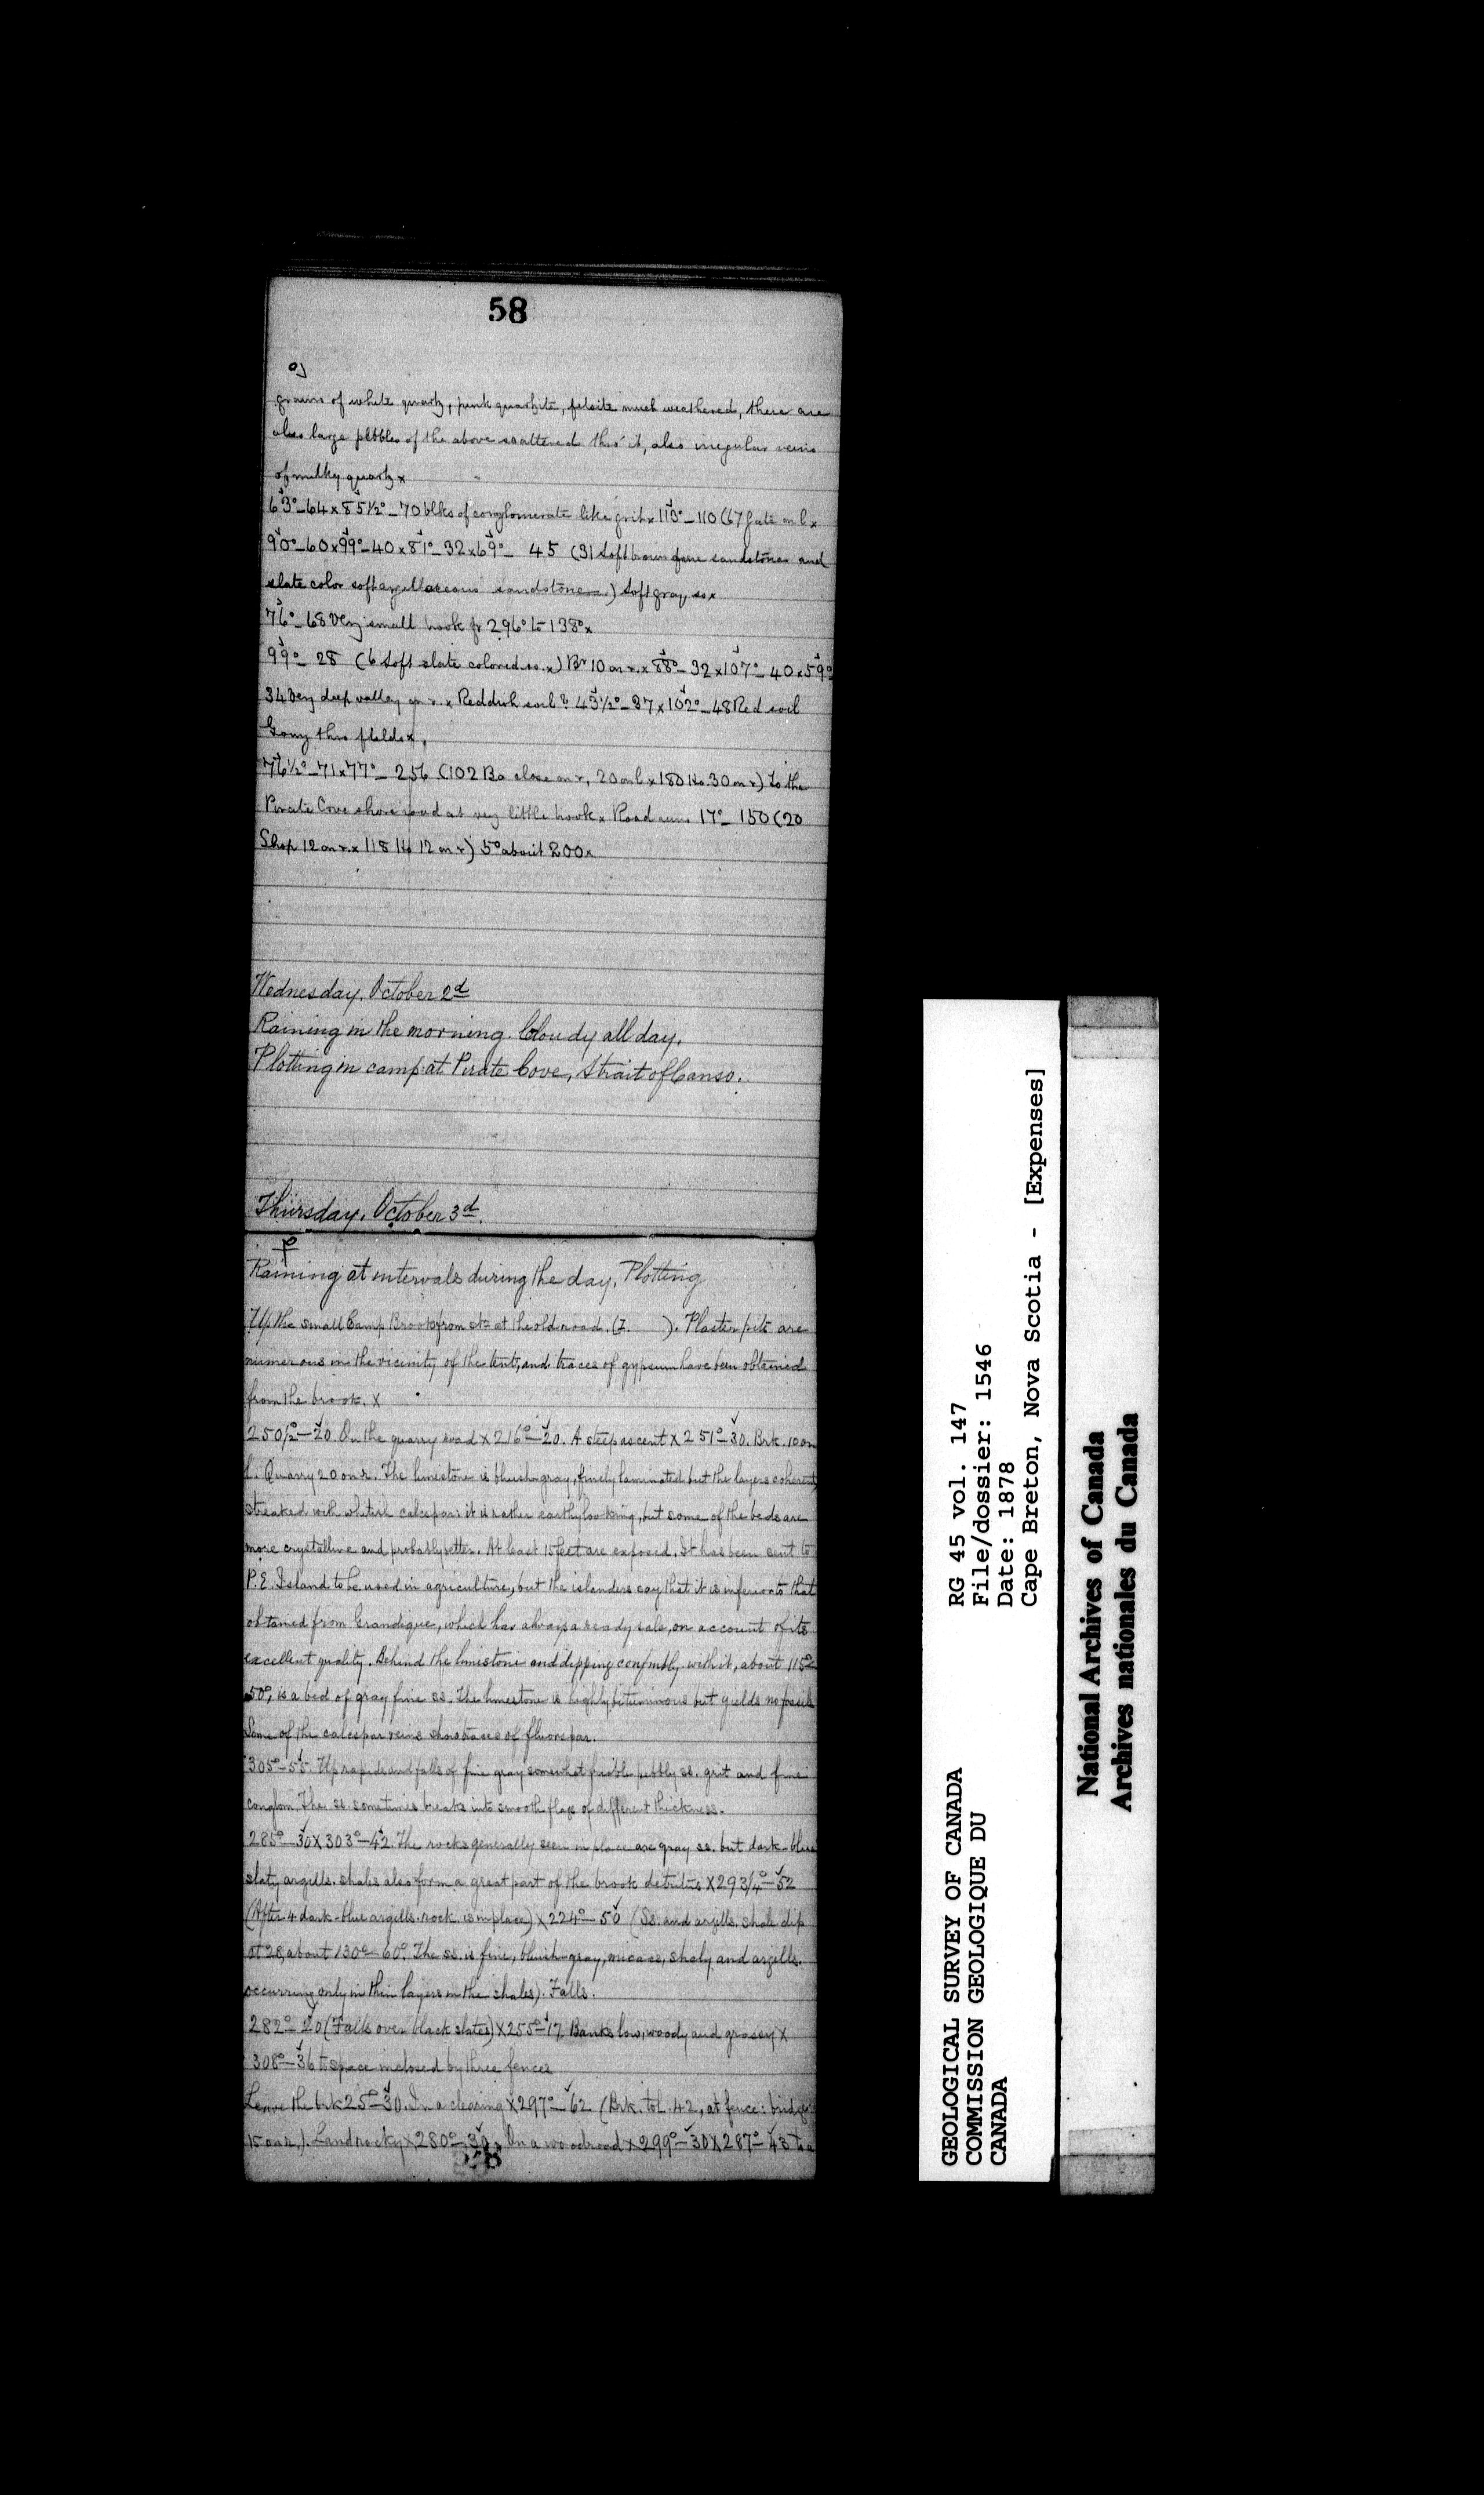 58
grains of white quartz, pink quartzite, felsite much weathered, there are
also large pebbles of the above scattered thro' it, also irregular veins
of milky quartz x
63°–64 x 85½°–70 blks of conglomerate like grit x 113°–110 (67 Gate on l x
90°–60 x 99°–40 x 81°–32 x 69°– 45 (31 Soft brown fine sandstones and
slate color soft argillaceous sandstones.) Soft gray ss x
76°–68 Very small brook fr 296° to 138° x
99°– 28 (6 Soft slate colored ss. x) Br 10 on r. x 88°–32 x 107°–40 x 59°
34 Very deep valley on r. x Reddish soil 45½°–37 x 102°–48 Red soil
Going thro fields x
76½°–71 x 77°– 256 (102 Ba close on r, 20 on l x 180 Ho. 30 on r) To the
Pirate Cove shore road at very little brook x Road runs 17°– 150 (20
Shop 12 on r. x 118 Ho 12 on r) 5° about 200 x
Wednesday, October 2d
Raining in the morning. Cloudy all day.
Plotting in camp at Pirate Cove, Strait of Canso.
Thursday, October 3d.
P
Raining at intervals during the day. Plotting
Up the small Camp Brook from stn at the old road. (I. ). Plaster pits are
numerous in the vicinity of the tent, and traces of gypsum have been obtained
from the brook. X
250½°–20. On the quarry road X 216°–20. A steep ascent X 251°–30. Brk. 10 on
l. Quarry 20 on r. The limestone is bluish-gray, finely laminated but the layers coherent
streaked with whitish calcspar: it is rather earthy looking, but some of the beds are
more crystalline and probably better. At least 15 feet are exposed. It has been sent to
P. E. Island to be used in agriculture, but the islanders say that it is inferior to that
obtained from Grandique, which has always a ready sale, on account of its
excellent quality. Behind the limestone and dipping confmbly. with it, about 115°–
50°, is a bed of gray fine ss. The limestone is highly bituminous but yields no fossils
Some of the calcspar veins show traces of fluorspar.
305°–55. Up rapids and falls of fine gray somewhat friable pebbly ss. grit and fine
conglom. The ss. sometimes breaks into smooth flags of different thickness.
285°–30 X 303°–42. The rocks generally seen in place are gray ss. but dark-blue
slaty argills. shales also form a great part of the brook detritus X 293¼°–52
(After 4 dark-blue argills. rock is in place) X 224°–50 (Ss. and argills. shale dip
at 28, about 130°–60°. The ss. is fine, bluish-gray, micass, shaly and argills.
occurring only in thin layers in the shales). Falls.
282°–20 (Falls over black slates) X 255°–17 Banks low, woody and grassy X
308°–36 to space inclosed by three fences
Leave the brk 25°–30. In a clearing X 297°–62 (Brk. to l. 42, at fence: bridge
15 on r.). Land rocky X 280°–30. On a woodroad X 299°–30 X 287°–43 to a
GEOLOGICAL SURVEY OF CANADA
COMMISSION GEOLOGIQUE DU
CANADA
RG 45 vol. 147
File/dossier: 1546
Date: 1878
Cape Breton, Nova Scotia - [Expenses]
National Archives of Canada
Archives nationales du Canada